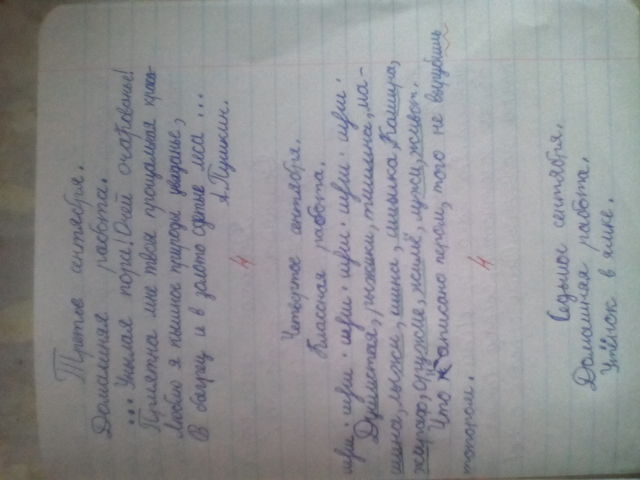 Третье сентября.
Домашняя работа.
... Унылая пора! Очей очарованье!
Приятна мне твоя прощальная краса-
Люблю я пышное природы увяданье,
В багрец и в золото одетые леса ...
А. Пушкин.
4
Четвёртое сентября.
Классная работа.
жи ши жи ши жи ши жи ши
Душистая, рыжики, тишина, ма-
шина, лыжи, шина, мышка, Кашира,
жираф, оружие, жильё, мужи, живот.
Что написано пером, того не вырубишь
топором.
4
Седьмое сентября.
Домашняя работа.
Утёнок в ямке.